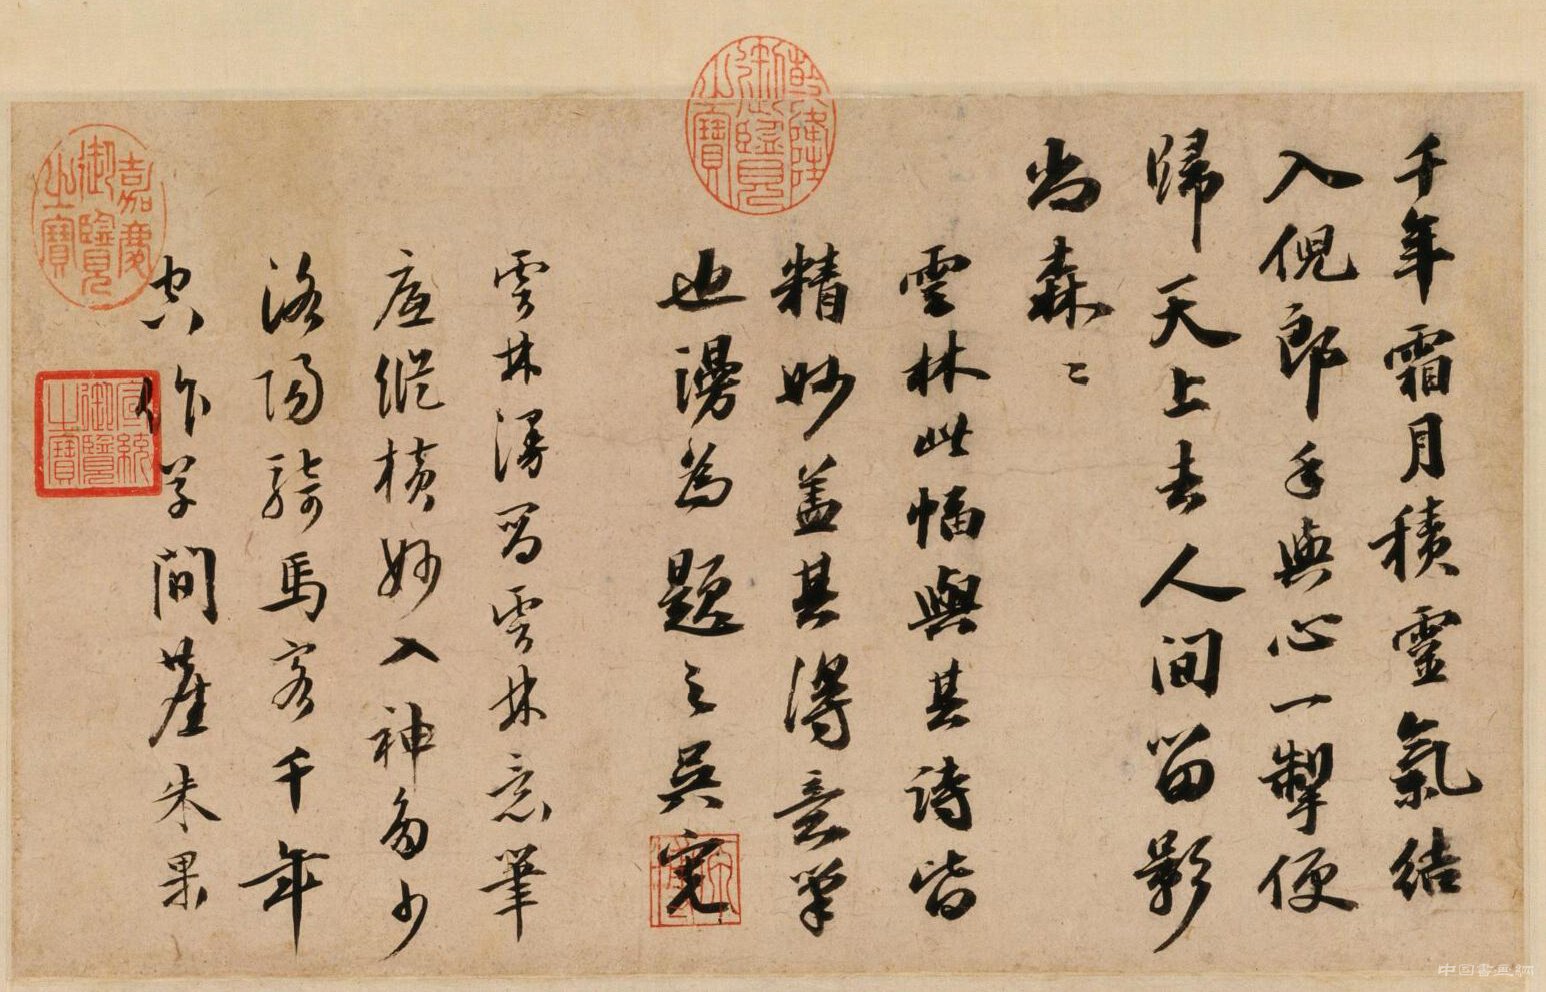 千年霜月積靈氣結
入倪郎手與心一掣便
歸天上去人间留影
尚森〻
雲林此幅與其詩皆
精妙蓋其得意筆
也漫為題之吳寬
雲林漫寫雲林意筆
底縱橫妙入神多少
洛陽騎馬客千年
空作子間薩朱果
乾隆御覽之寶
嘉慶御覽之寶
宣統御覽之寶
中国書画網